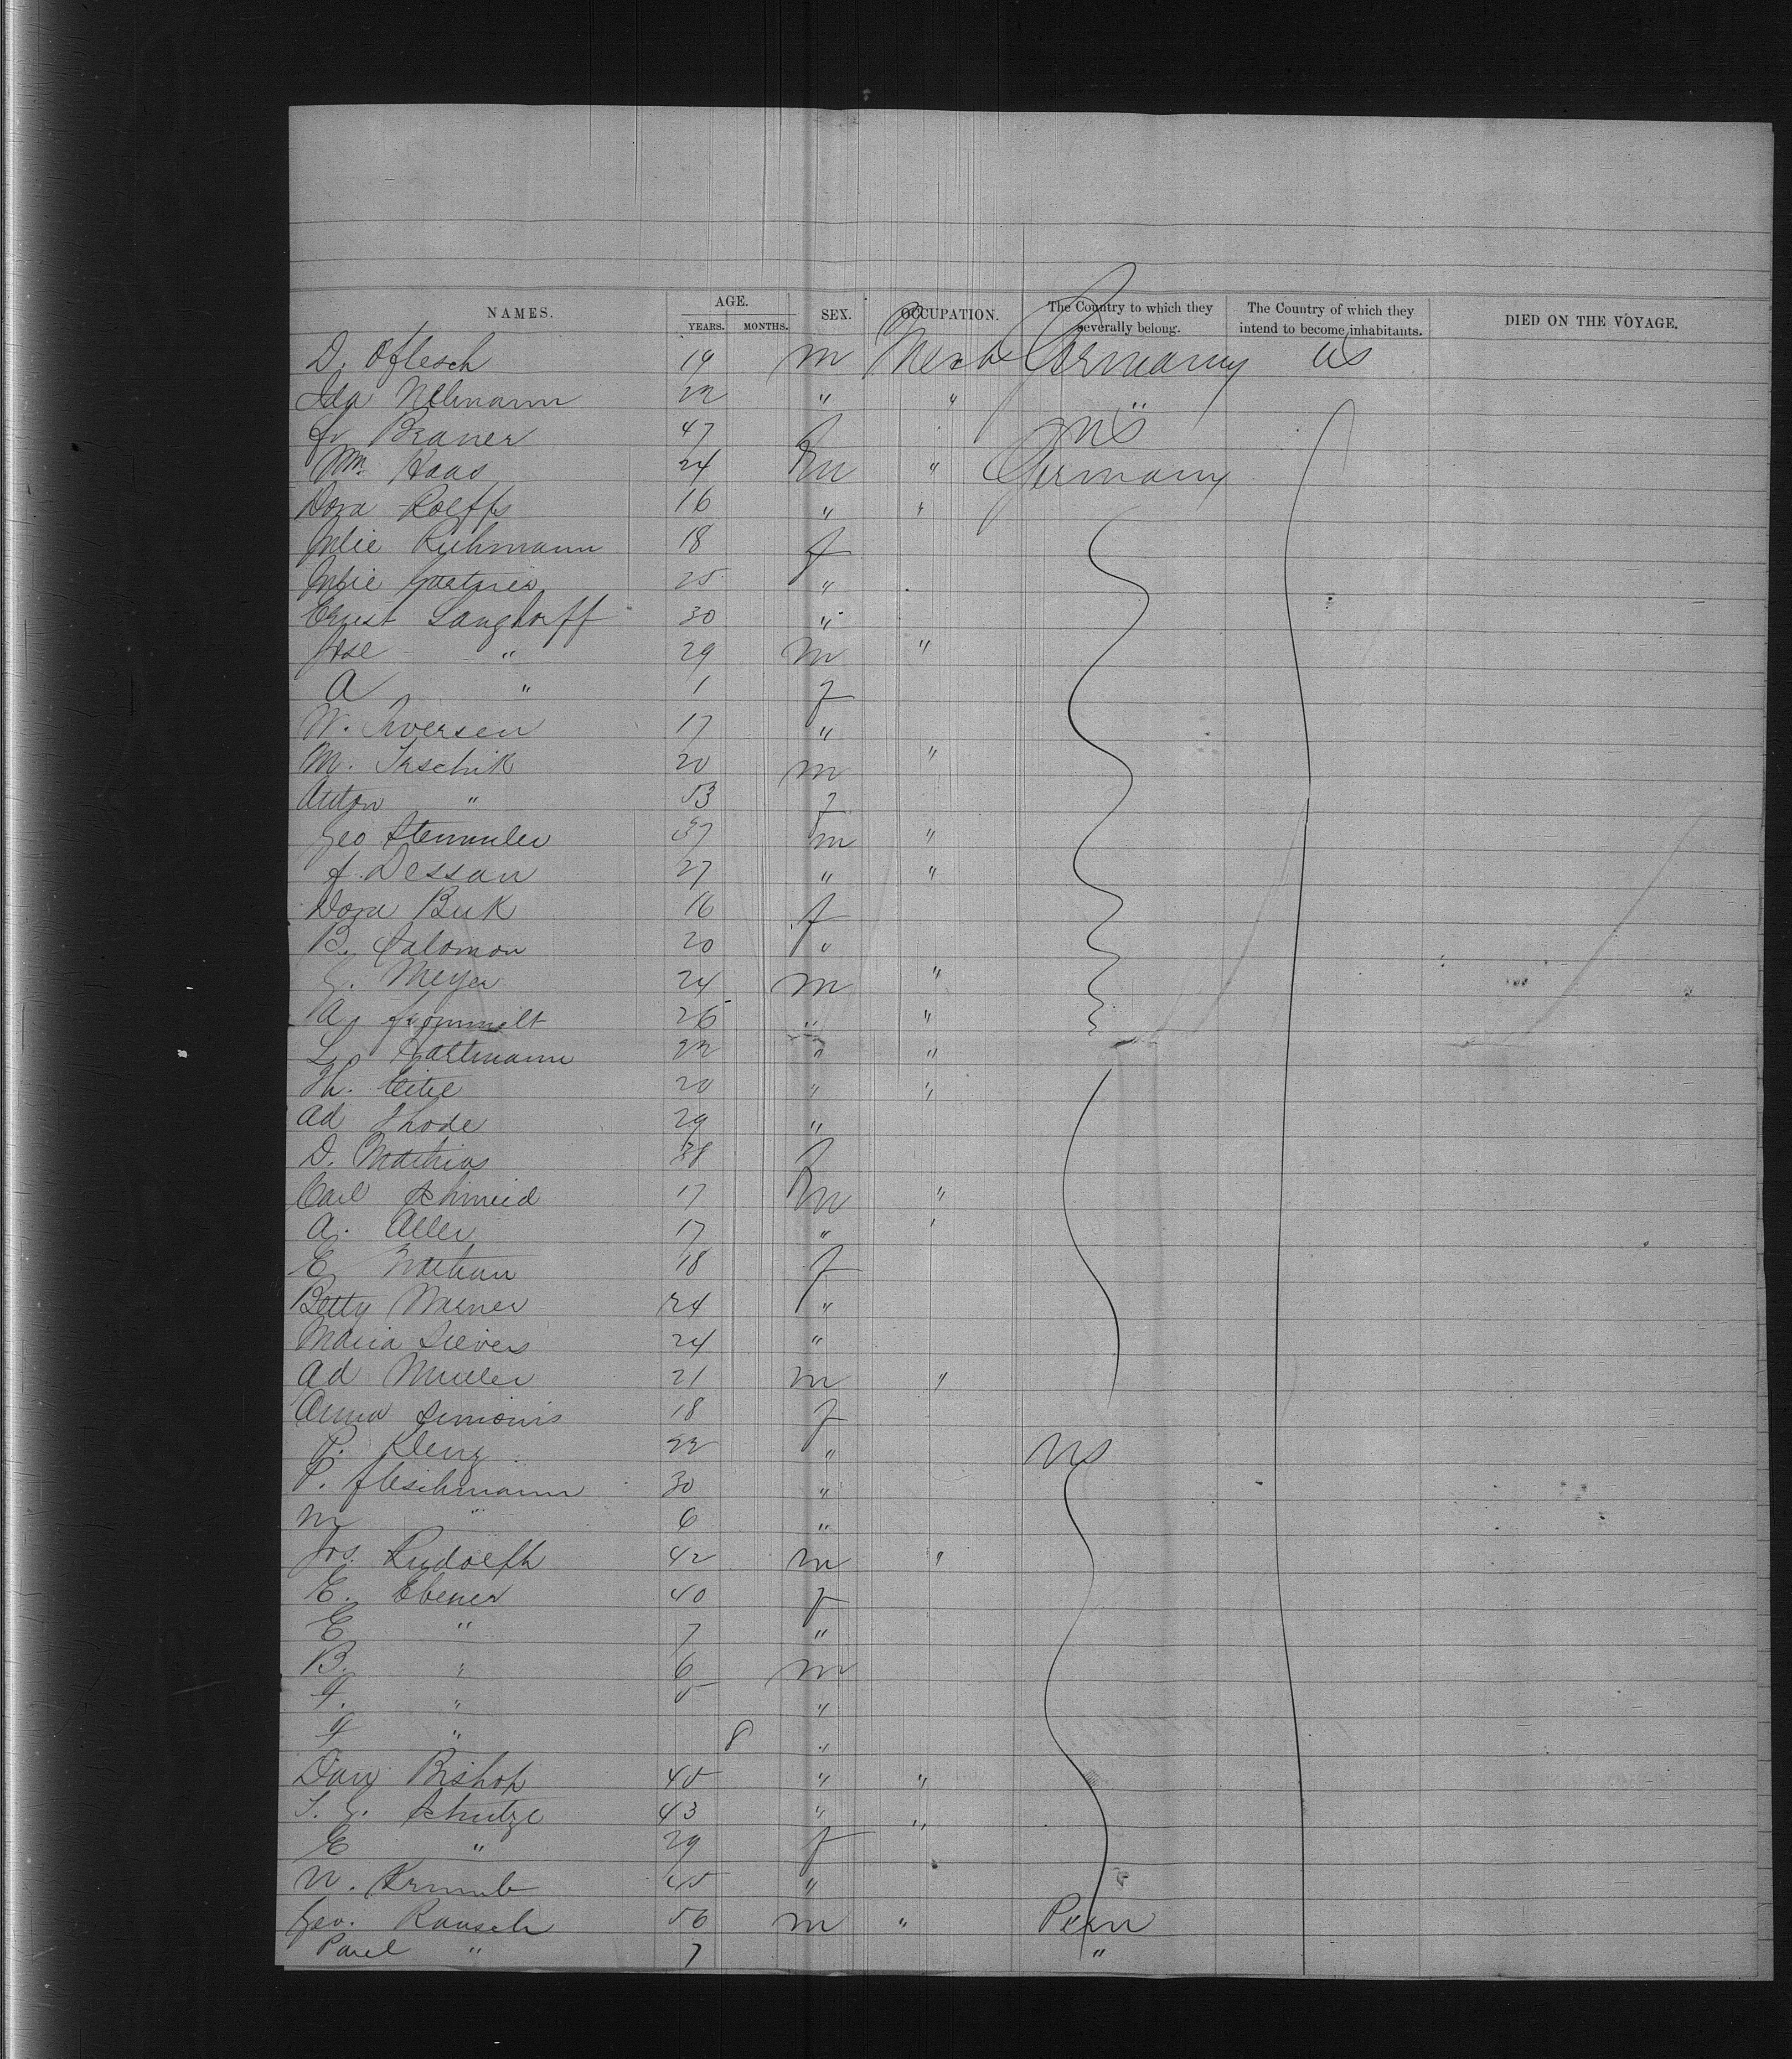 NAMES. AGE. YEARS. MONTHS. SEX. OCCUPATION. The Country to which they severally belong. The Country of which they intend to become inhabitants. DIED ON THE VOYAGE.
D. Oflesch 19 m Merch Germany US
Ida 22 " " "
Fr Brauer 47 f US
Wm. Haas 24 m " Germany
Dora Roeffs 16 " "
Julie Ruhmann 18 f
Julie 25 "
Ernst Langhorff 30 "
" 29 m "
A " 1 f
W. Iversen 17 "
M. Irschik 20 m "
Anton " 53 f
Geo Stemmler 37 m "
J. Dessau 27 " "
Dora Buk 16 f
B. Salomon 20 "
G. Meyer 24 m "
A. Frommelt 26 " "
Leo Hartmann 22 " "
Th. 20 " "
Ad Thode 29 "
D. Mathias 38 f
Carl Schmeid 17 m "
A. Aller 17 " "
E Nathan 18 f
Betty Werner 24 "
Maria Sievers 24 "
Ad Muller 21 m "
Anna Simonis 18 f
P. Klenz 22 " US
P. Fleschmann 30 "
M " 6 "
Jos. Rudolph 42 m "
E. Ebener 40 f
E " 7 "
B. " 6 m
F. " 5 "
F " 8 "
Dav Bishop 45 " "
T. G. Schutze 43 " "
E " 29 f
W. Krumb 45 "
Geo. Rausch 56 m " Peru
Paul " 7 "